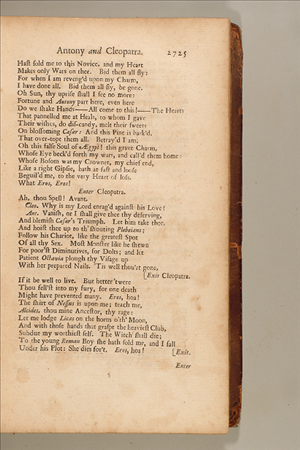 Antony and Cleopatra. 2725
Hast sold me to this Novice, and my Heart
Makes only Wars on thee. Bid them all fly:
For when I am reveng'd upon my Charm,
I have done all. Bid them all fly, be gone.
Oh Sun, thy uprise shall I see no more:
Fortune and Antony part here, even here
Do we shake Hands——All come to this!——The Hearts
That pannelled me at Heels, to whom I gave
Their wishes, do dis-candy, melt their sweets
On blossoming Cæsar: And this Pine is bark'd,
That over-topt them all. Betray'd I am:
Oh this false Soul of Ægypt! this grave Charm,
Whose Eye beck'd forth my wars, and call'd them home:
Whose Bosom was my Crownet, my chief end,
Like a right Gipsie, hath at fast and loose
Beguil'd me, to the very Heart of loss.
What Eros, Eros!
Enter Cleopatra.
Ah, thou Spell! Avant.
Cleo. Why is my Lord enrag'd against his Love?
Ant. Vanish, or I shall give thee thy deserving,
And blemish Cæsar's Triumph. Let him take thee,
And hoist thee up to th' shouting Plebeians;
Follow his Chariot, like the greatest Spot
Of all thy Sex. Most Monster like be shewn
For poor'st Diminutives, for Dolts; and let
Patient Octavia plough thy Visage up
With her prepared Nails. 'Tis well thou'rt gone,
[Exit Cleopatra.
If it be well to live. But better 'twere
Thou fell'st into my fury, for one death
Might have prevented many. Eros, hoa!
The shirt of Nessus is upon me; teach me,
Alcides, thou mine Ancestor, thy rage:
Let me lodge Licas on the horns o'th' Moon,
And with those hands that graspt the heaviest Club,
Subdue my worthiest self. The Witch shall die;
To the young Roman Boy she hath sold me, and I fall
Under his Plot: She dies for't. Eros, hoa! [Exit.
Enter